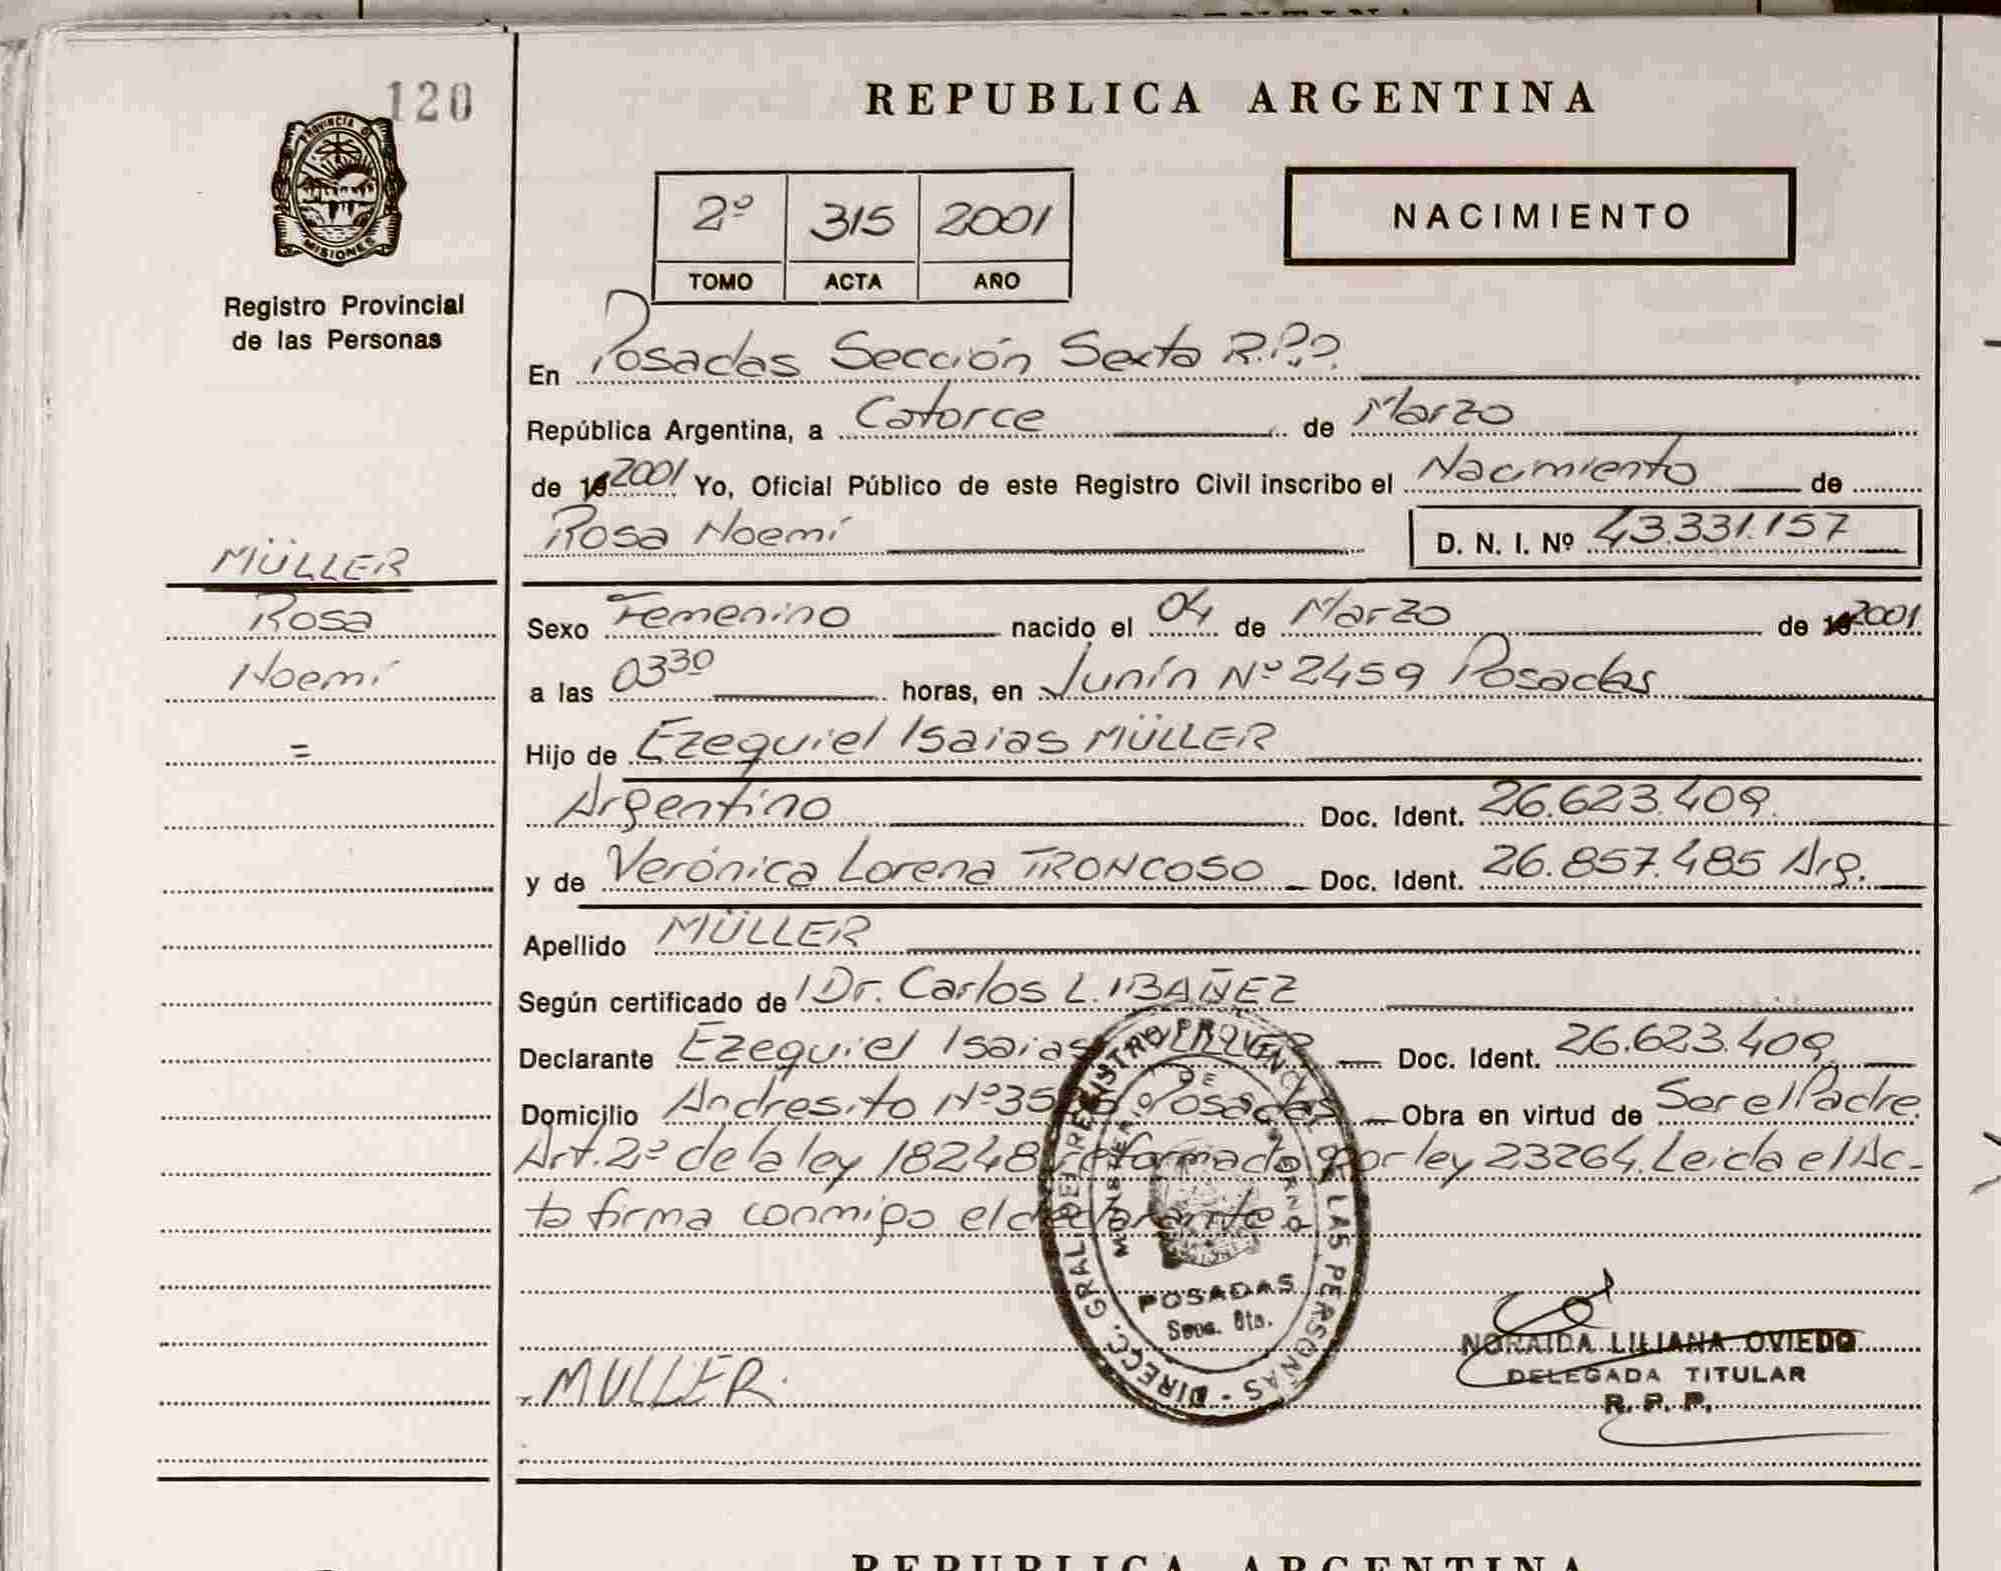 120
REPUBLICA ARGENTINA
PROVINCIA DE
MISIONES
Registro Provincial
de las Personas
2º 315 2001
TOMO ACTA AÑO
NACIMIENTO
En Posadas Sección Sexta R.P.P.
República Argentina, a Catorce de Marzo
de 2001 Yo, Oficial Público de este Registro Civil inscribo el Nacimiento de
Rosa Noemí D. N. I. Nº 43.331.157
MÜLLER
Rosa
Noemí
=
Sexo Femenino nacido el 04 de Marzo de 2001
a las 03 30 horas, en Junín Nº 2459 Posadas
Hijo de Ezequiel Isaias MÜLLER
Argentino Doc. Ident. 26.623.409
y de Verónica Lorena TRONCOSO Doc. Ident. 26.857.485 Arg.
Apellido MÜLLER
Según certificado de Dr. Carlos L. IBAÑEZ
Declarante Ezequiel Isaias Doc. Ident. 26.623.409
Domicilio Andresito Posadas Obra en virtud de Ser el Padre.
Art. 2º de la ley 18248 reformada por ley 23264. Leída el Ac-
ta firma conmigo el declarante.
DIRECC. GRAL. DEL REGISTRO PROVINCIAL DE LAS PERSONAS
POSADAS
MULLER.
NORAIDA LILIANA OVIEDO
DELEGADA TITULAR
R. P. P.
REPUBLICA ARGENTINA